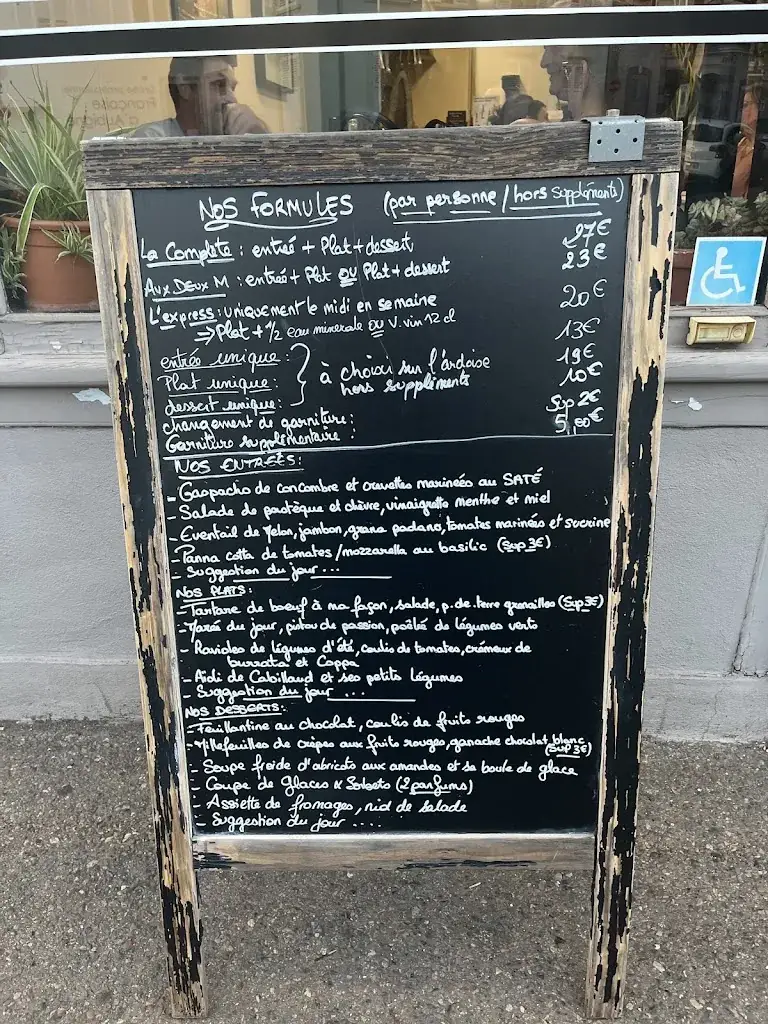 Française
d'Aubigne
NOS FORMULES (par personne / hors suppléments)
La Complete : entreé + Plat + dessert 27€
Aux Deux M : entreé + Plat OU Plat + dessert 23€
L'express : uniquement le midi en semaine 20€
=> Plat + 1/2 eau minerale OU V. vin 12 cl
entreé unique : 13€
Plat unique : } à choisir sur l'ardoise 19€
dessert unique : hors suppléments 10€
changement de garniture : Sup 2€
Garniture supplémentaire : 5,00€
NOS ENTREÉS :
- Gaspacho de concombre et crevettes marinées au SATÉ
- Salade de pastèque et chèvre, vinaigrette menthe et miel
- Eventail de Melon, jambon, grana padano, tomates marinées et sucrine
- Panna cotta de tomates / mozzarella au basilic (Sup 3€)
- Suggestion du jour ...
NOS PLATS :
- Tartare de boeuf à ma façon, salade, p. de. terre grenailles (Sup 3€)
- Marée du jour, pistou de passion, poêlée de légumes verts
- Ravioles de légumes d'été, coulis de tomates, crémeux de
burrata et Coppa
- Aïoli de Cabillaud et ses petits légumes
- Suggestion du jour ...
NOS DESSERTS :
- Feuillantine au chocolat, coulis de fruits rouges
- Millefeuilles de crèpes aux fruits rouges, ganache chocolat blanc
(Sup 3€)
- Soupe froide d'abricots aux amandes et sa boule de glace
- Coupe de Glaces & Sorbets (2 parfums)
- Assiette de fromages, nid de salade
- Suggestion du jour ....